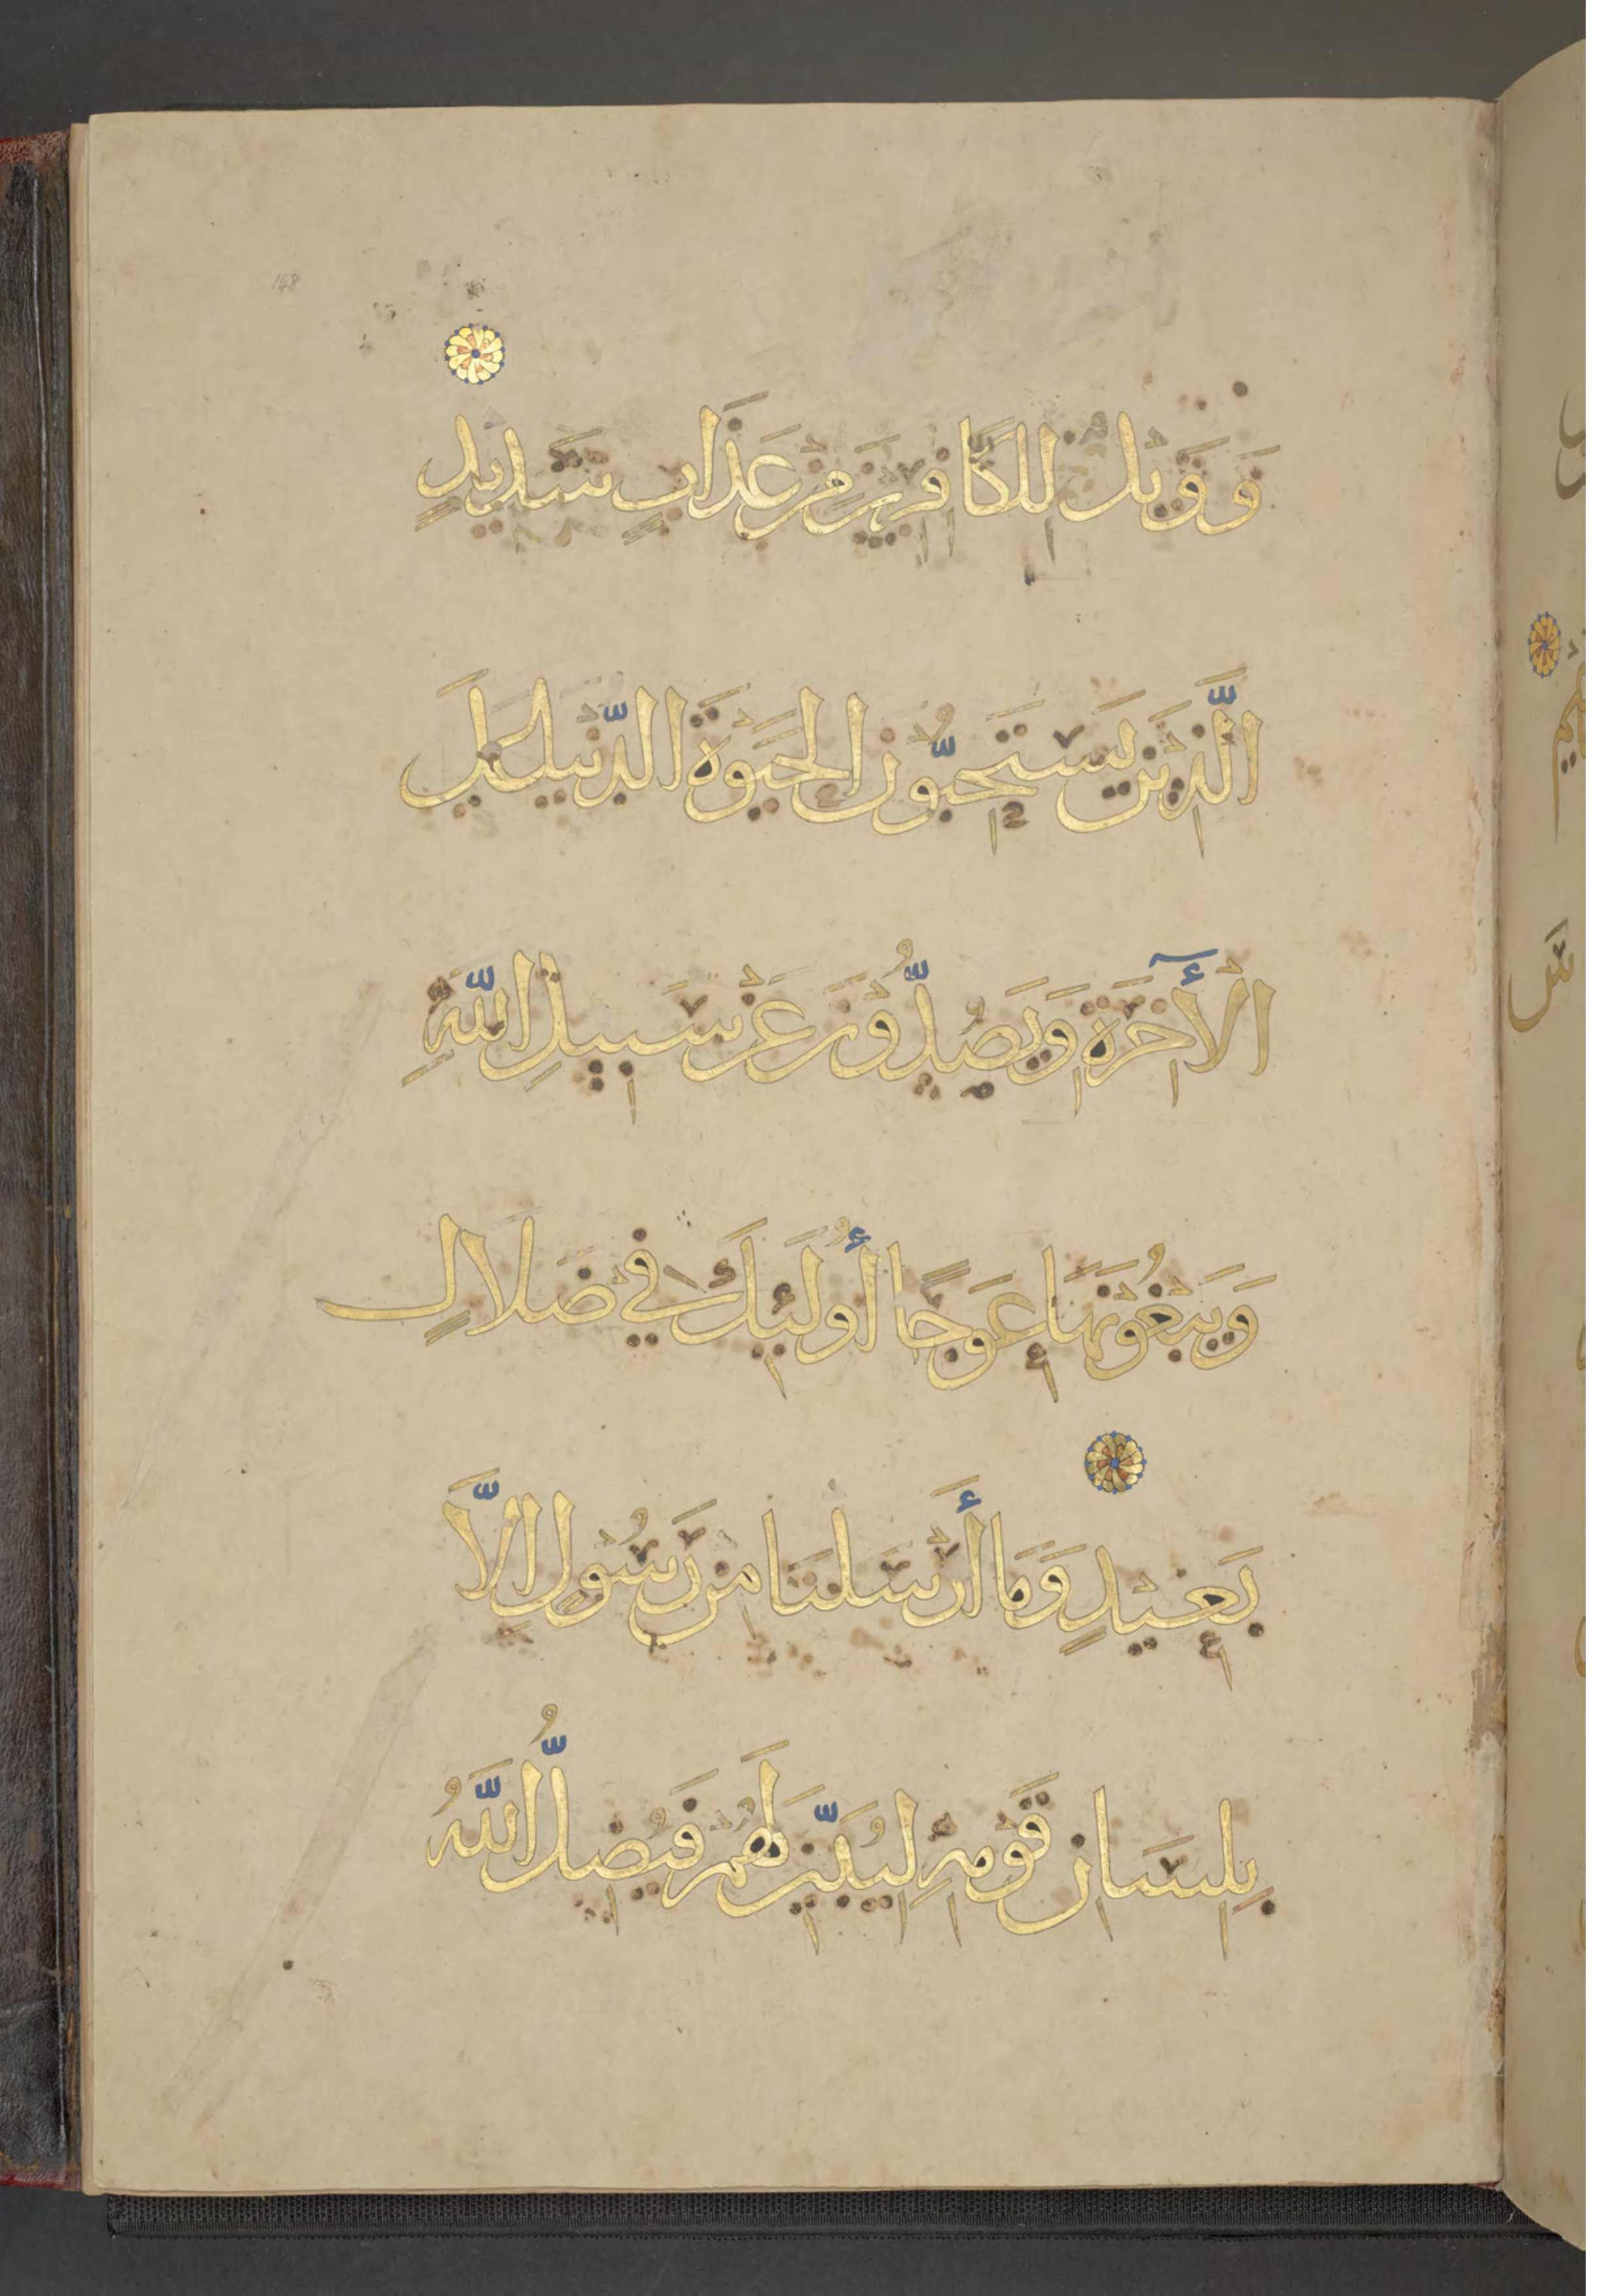 148
وَوَيْلٌ لِلْكَافِرِينَ مِنْ عَذَابٍ شَدِيدٍ
الَّذِينَ يَسْتَحِبُّونَ الْحَيَوةَ الدُّنْيَا عَلَى
الْآخِرَةِ وَيَصُدُّونَ عَنْ سَبِيلِ اللَّهِ
وَيَبْغُونَهَا عِوَجًا أُولَئِكَ فِي ضَلَالٍ
بَعِيدٍ وَمَا أَرْسَلْنَا مِنْ رَسُولٍ إِلَّا
بِلِسَانِ قَوْمِهِ لِيُبَيِّنَ لَهُمْ فَيُضِلُّ اللَّهُ